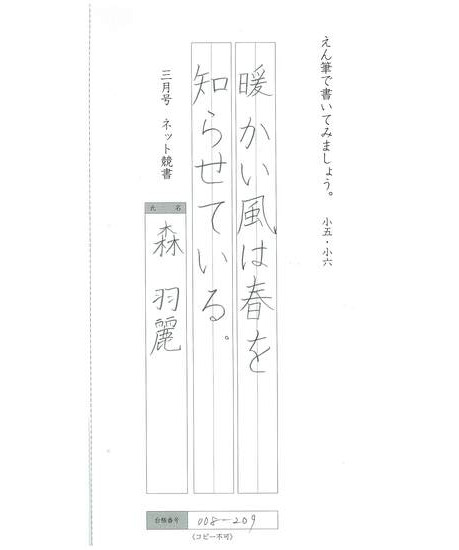 えん筆で書いてみましょう。 小五・小六
暖かい風は春を
知らせている。
三月号 ネット競書
氏 名
森 羽麗
台帳番号 008-209
《コピー不可》